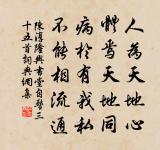 人為天地心
體焉天地同
病於有我私
不能相流通
陳淳隆興書堂自警三
十五首詞典網集